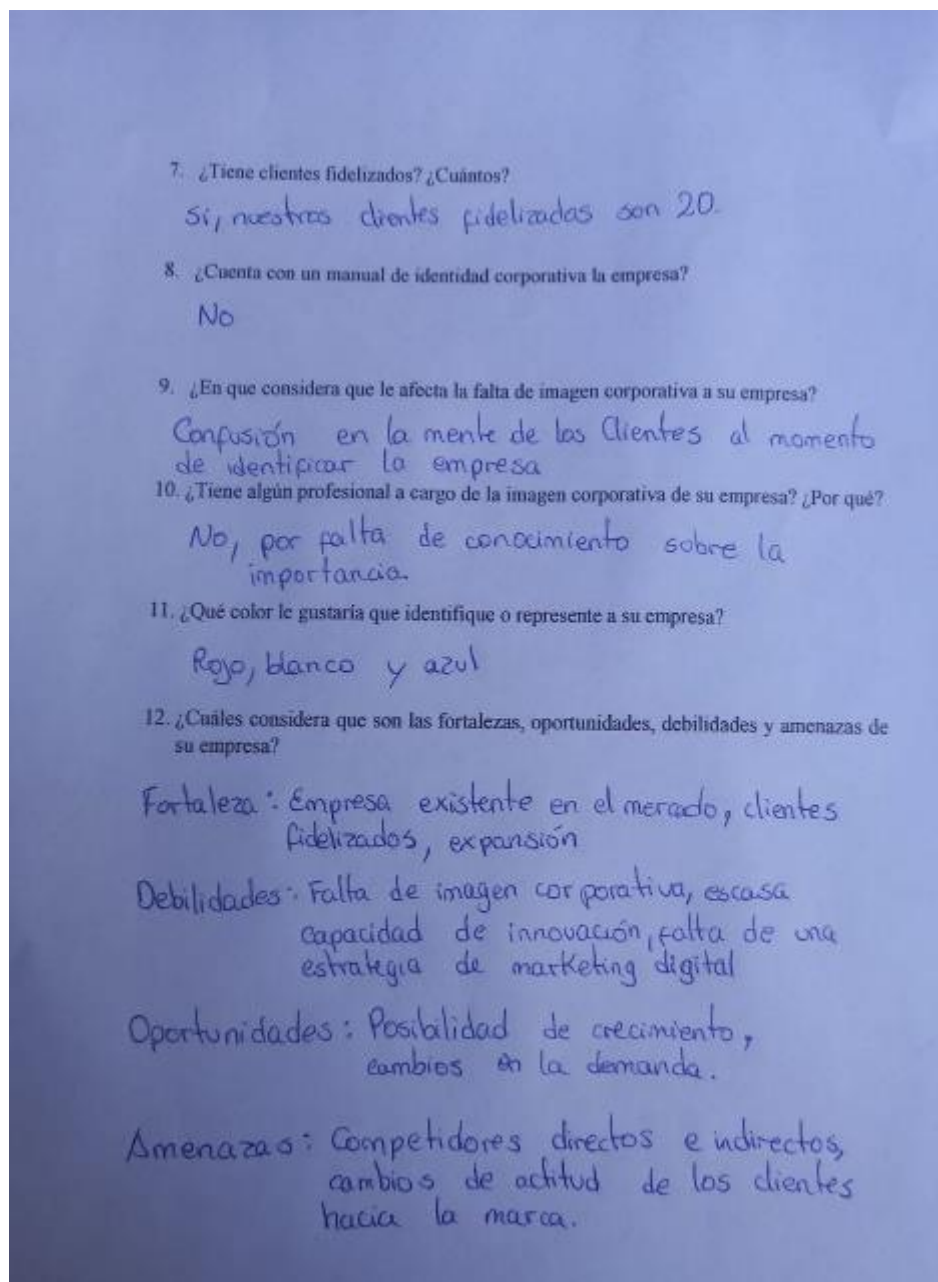 7. ¿Tiene clientes fidelizados? ¿Cuántos?
Si, nuestros clientes fidelizados son 20.
8. ¿Cuenta con un manual de identidad corporativa la empresa?
No
9. ¿En que considera que le afecta la falta de imagen corporativa a su empresa?
Confusión en la mente de los Clientes al momento
de identificar la empresa
10. ¿Tiene algún profesional a cargo de la imagen corporativa de su empresa? ¿Por qué?
No, por falta de conocimiento sobre la
importancia.
11. ¿Qué color le gustaría que identifique o represente a su empresa?
Rojo, blanco y azul
12. ¿Cuáles considera que son las fortalezas, oportunidades, debilidades y amenazas de
su empresa?
Fortaleza: Empresa existente en el mercado, clientes
fidelizados, expansión
Debilidades: Falta de imagen corporativa, escasa
capacidad de innovación, falta de una
estrategia de marketing digital
Oportunidades: Posibilidad de crecimiento,
cambios en la demanda.
Amenazas: Competidores directos e indirectos,
cambios de actitud de los clientes
hacia la marca.